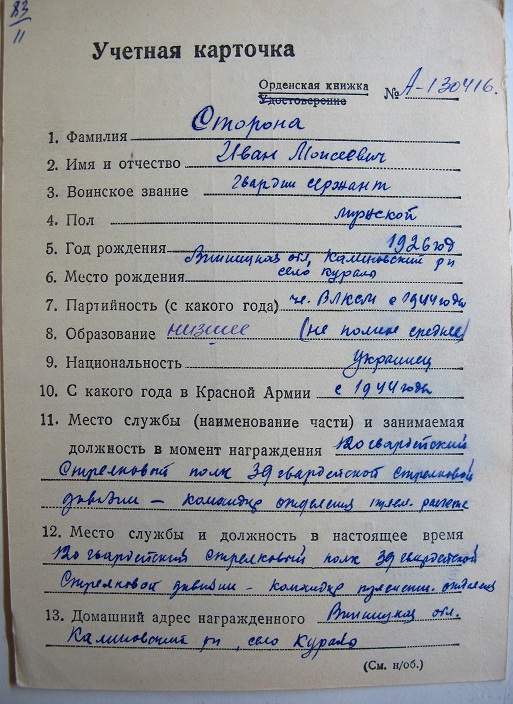 83
11
Учетная карточка
Орденская книжка
Удостоверение № А-130416.
1. Фамилия Сторона
2. Имя и отчество Иван Моисеевич
3. Воинское звание гвардии сержант
4. Пол мужской
5. Год рождения 1926 год
Винницкая обл, Калиновский р-н
6. Место рождения село Курало
7. Партийность (с какого года) чл. ВЛКСМ с 1944 года
8. Образование низшее (не полное среднее)
9. Национальность Украинец
10. С какого года в Красной Армии с 1944 года
11. Место службы (наименование части) и занимаемая
должность в момент награждения 120 гвардейский
Стрелковый полк 39 гвардейской стрелковой
дивизии – командир отделения расчета
12. Место службы и должность в настоящее время
120 гвардейский стрелковый полк 39 гвардейской
Стрелковой дивизии - командир отделения
13. Домашний адрес награжденного Винницкая обл.
Калиновский р-н, село Курало
(См. н/об.)